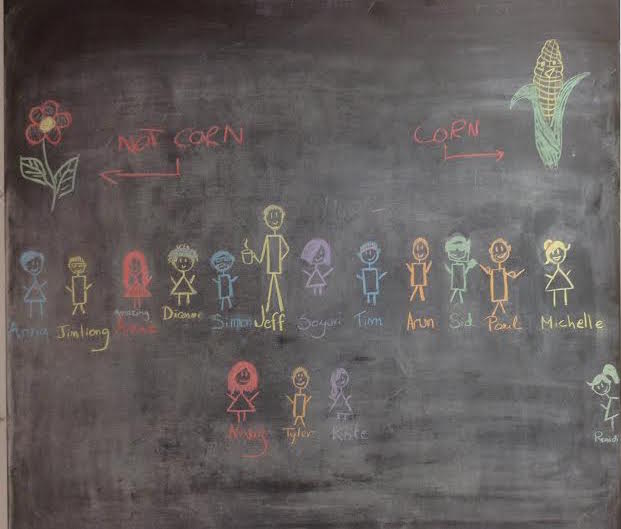 NOT CORN
CORN
Anna Jinliang Amazing Dianne Simon Jeff Sayuri Tim Arun Sid Paul Michelle
Tyler Kate